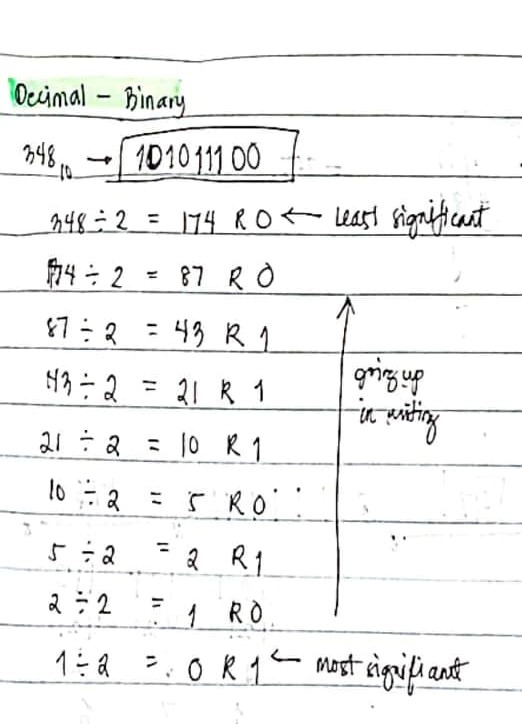 Decimal - Binary
348₁₀ → 101011100
348 ÷ 2 = 174 R 0 ← Least significant
174 ÷ 2 = 87 R 0
87 ÷ 2 = 43 R 1
43 ÷ 2 = 21 R 1
21 ÷ 2 = 10 R 1
10 ÷ 2 = 5 R 0
5 ÷ 2 = 2 R 1
2 ÷ 2 = 1 R 0
1 ÷ 2 = 0 R 1 ← most signifiant
going up
in writing